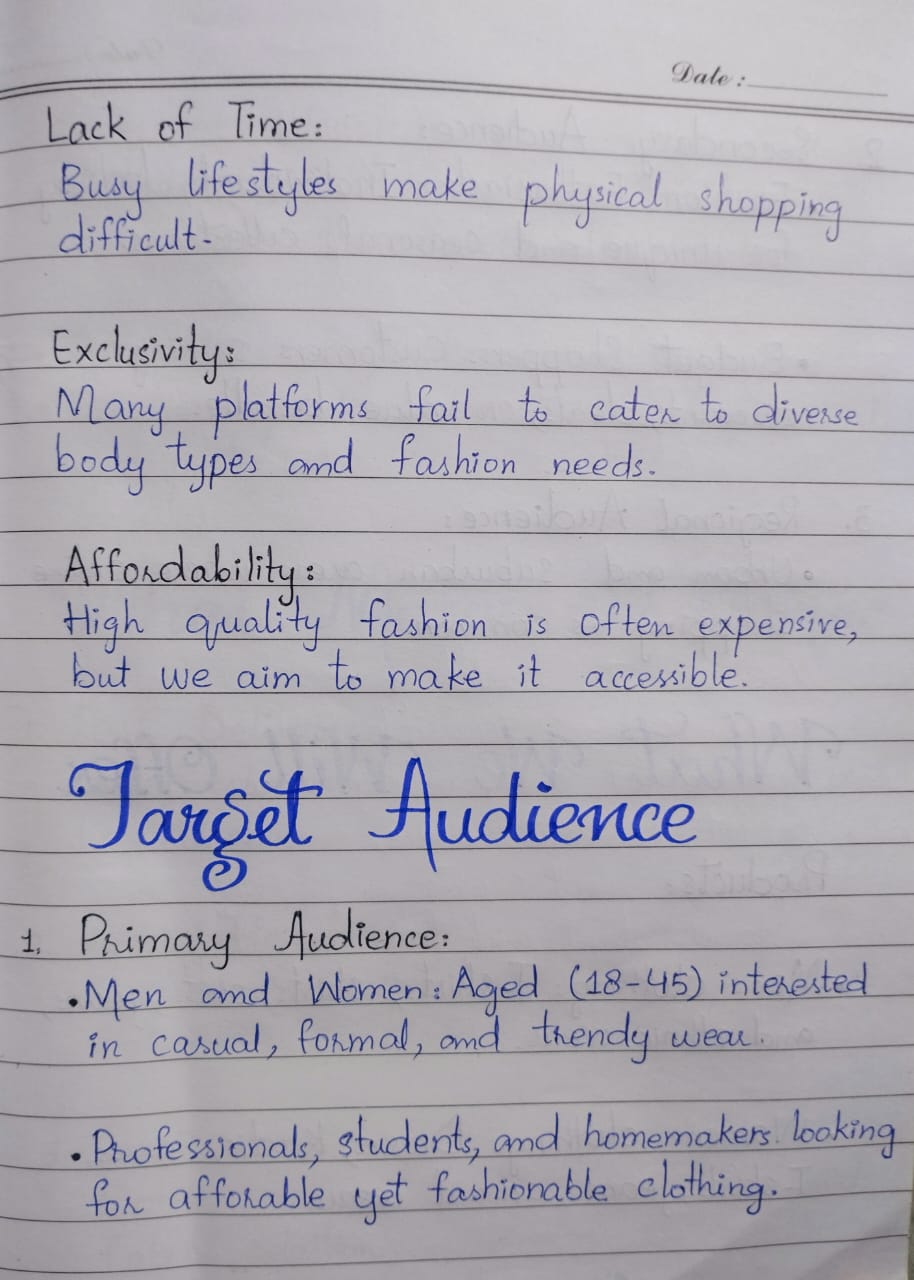 Date:
Lack of Time:
Busy lifestyles make physical shopping
difficult.
Exclusivity:
Many platforms fail to cater to diverse
body types and fashion needs.
Affordability:
High quality fashion is often expensive,
but we aim to make it accessible.
Target Audience
1. Primary Audience:
• Men and Women: Aged (18-45) interested
in casual, formal, and trendy wear.
• Professionals, students, and homemakers looking
for afforable yet fashionable clothing.